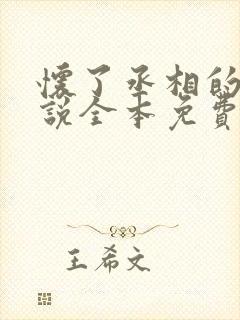 懷了丞相的
說全本免費
王希文